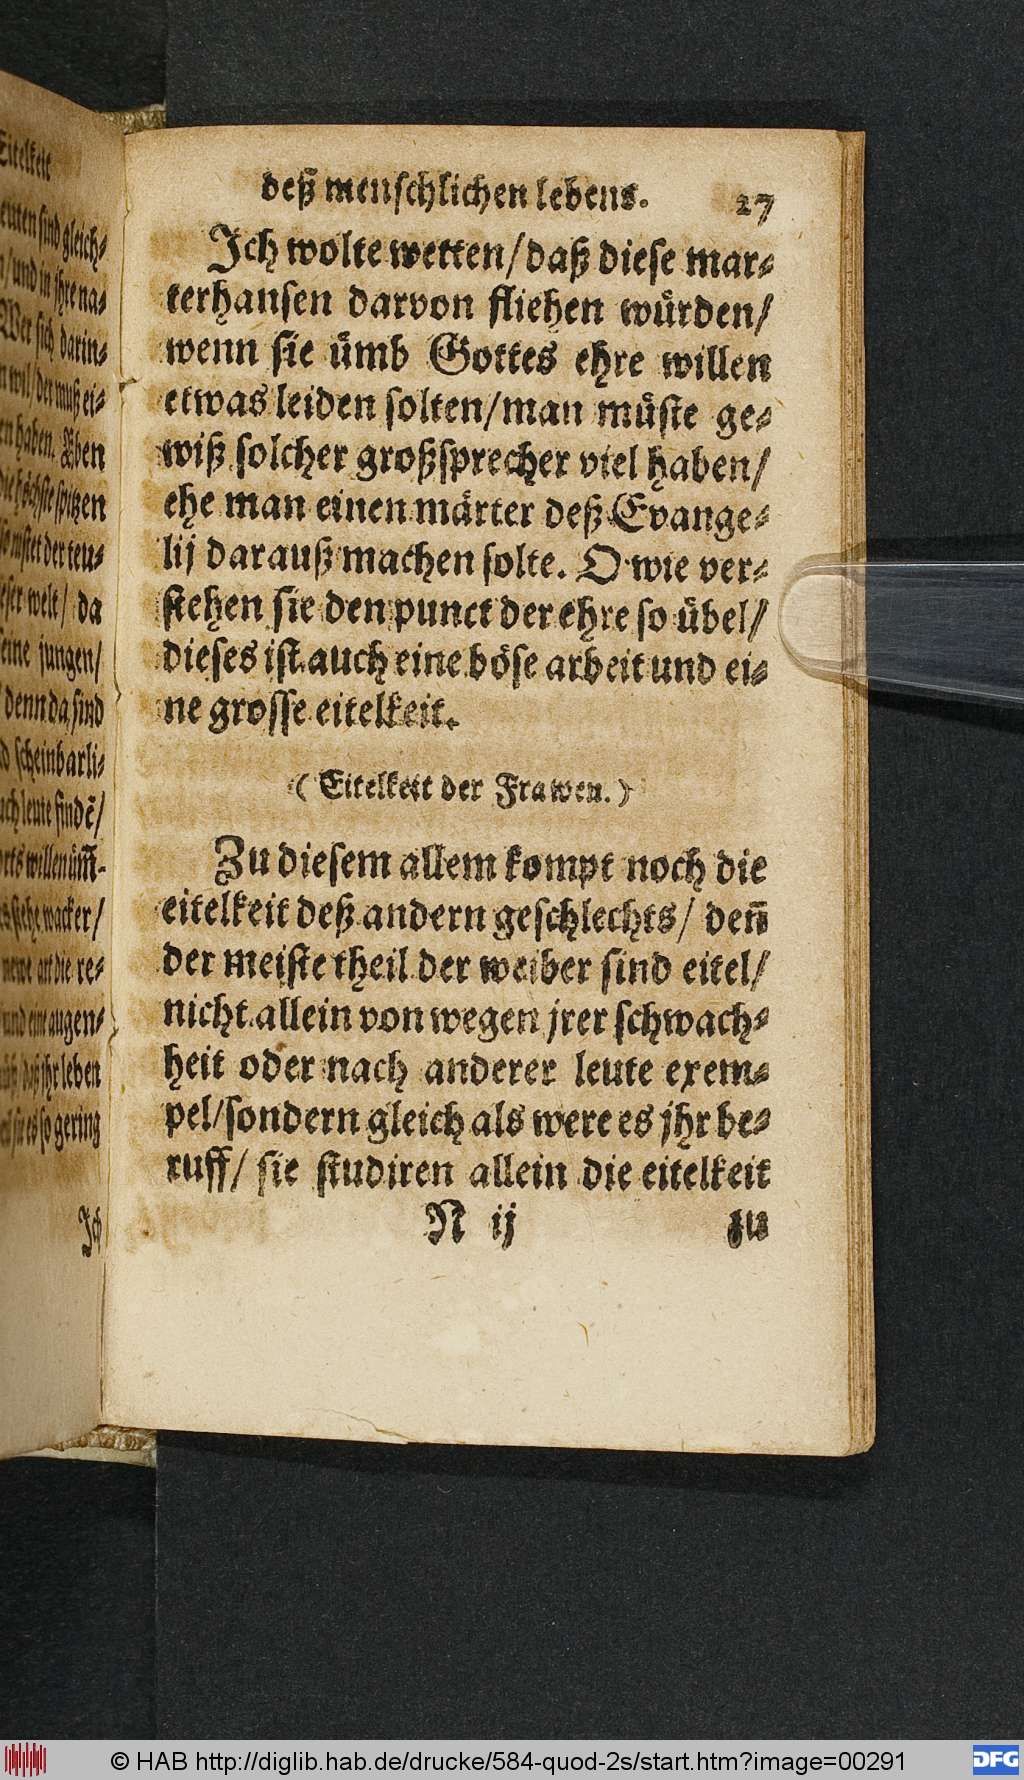 Eitelkeit
sind gleich⸗
/ und in jhre na⸗
Wer sich darin⸗
wil / der muß ei⸗
haben. Eben
die höchste spitzen
nistet der teu⸗
welt / da
seine jungen /
denn da sind
scheinbarli⸗
leute findẽ /
willen üm̃⸗
stehe wacker /
newe art die re⸗
und eine augen⸗
daß jhr leben
sie es so gering
Ich
deß menschlichen lebens. 27
Ich wolte wetten / daß diese mar⸗
terhansen darvon fliehen würden /
wenn sie ümb Gottes ehre willen
etwas leiden solten / man müste ge⸗
wiß solcher großsprecher viel haben /
ehe man einen märter deß Evange⸗
lij darauß machen solte. O wie ver⸗
stehen sie den punct der ehre so übel /
dieses ist auch eine böse arbeit und ei⸗
ne grosse eitelkeit.
( Eitelkeit der Frawen. )
Zu diesem allem kompt noch die
eitelkeit deß andern geschlechts / den̄
der meiste theil der weiber sind eitel /
nicht allein von wegen jrer schwach⸗
heit oder nach anderer leute exem⸗
pel / sondern gleich als were es jhr be⸗
ruff / sie studiren allein die eitelkeit
N ij zu
© HAB http://diglib.hab.de/drucke/584-quod-2s/start.htm?image=00291
DFG